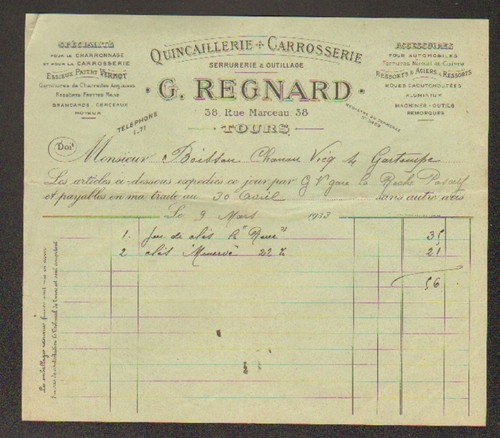 SPÉCIALITÉ
POUR LE CHARRONNAGE
ET POUR LA CARROSSERIE
ESSIEUX PATENT VERMOT
Garnitures de Charrettes Anglaises
FERRURES PATTES
BRANCARDS, CERCEAUX
MOTEUR
QUINCAILLERIE + CARROSSERIE
SERRURERIE & OUTILLAGE
G. REGNARD
38, Rue Marceau, 38
TOURS
TÉLÉPHONE
1.71
REGISTRE DU COMMERCE
ACCESSOIRES
POUR AUTOMOBILES
RESSORTS & ACIERS à RESSORTS
ROUES CAOUTCHOUTÉES
ALUMINIUM
MACHINES - OUTILS
REMORQUES
Doit
Monsieur Boisseau Charron Vicq s/ Gartempe
Les articles ci-dessous expédiés ce jour par G V gare La Roche Posay
et payables en ma traite au 30 avril sans autre avis
Le 9 Mars 1933
1 Jeu de clés à 35
2 clés 22 % 21
56